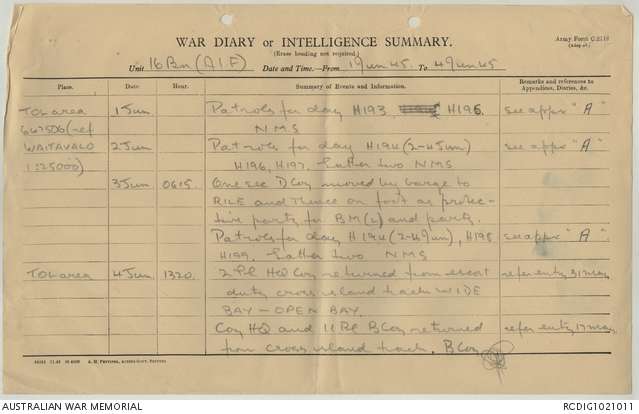 Army Form C.2118
WAR DIARY or INTELLIGENCE SUMMARY.
(Erase heading not required)
Unit 16 Bn (AIF) Date and Time—From 1 Jun 45 To 4 Jun 45
Place. Date Hour Summary of Events and Information. Remarks and references to Appendices, Diaries, &c.
TOL area 1 Jun Patrols for day H193 H195 see appx "A"
647506 (ref NMS
WAITAVALO 2 Jun Patrols for day H194 (2-4 Jun) see appx "A"
1:25000) H196, H197. Latter two NMS
3 Jun 0615. One sec D Coy moved by barge to
RILE and thence on foot as protec-
tive party for BM(L) and party.
Patrols for day H194 (2-4 Jun), H198 see appx "A".
H199. Latter two NMS
TOL area 4 Jun 1320. 2 Pl HQ Coy returned from escort refer entry 31 May
duty cross island track WIDE
BAY — OPEN BAY.
Coy HQ and 11 Pl B Coy returned refer entry 17 May
from cross island track. B Coy
AUSTRALIAN WAR MEMORIAL RCDIG1021011